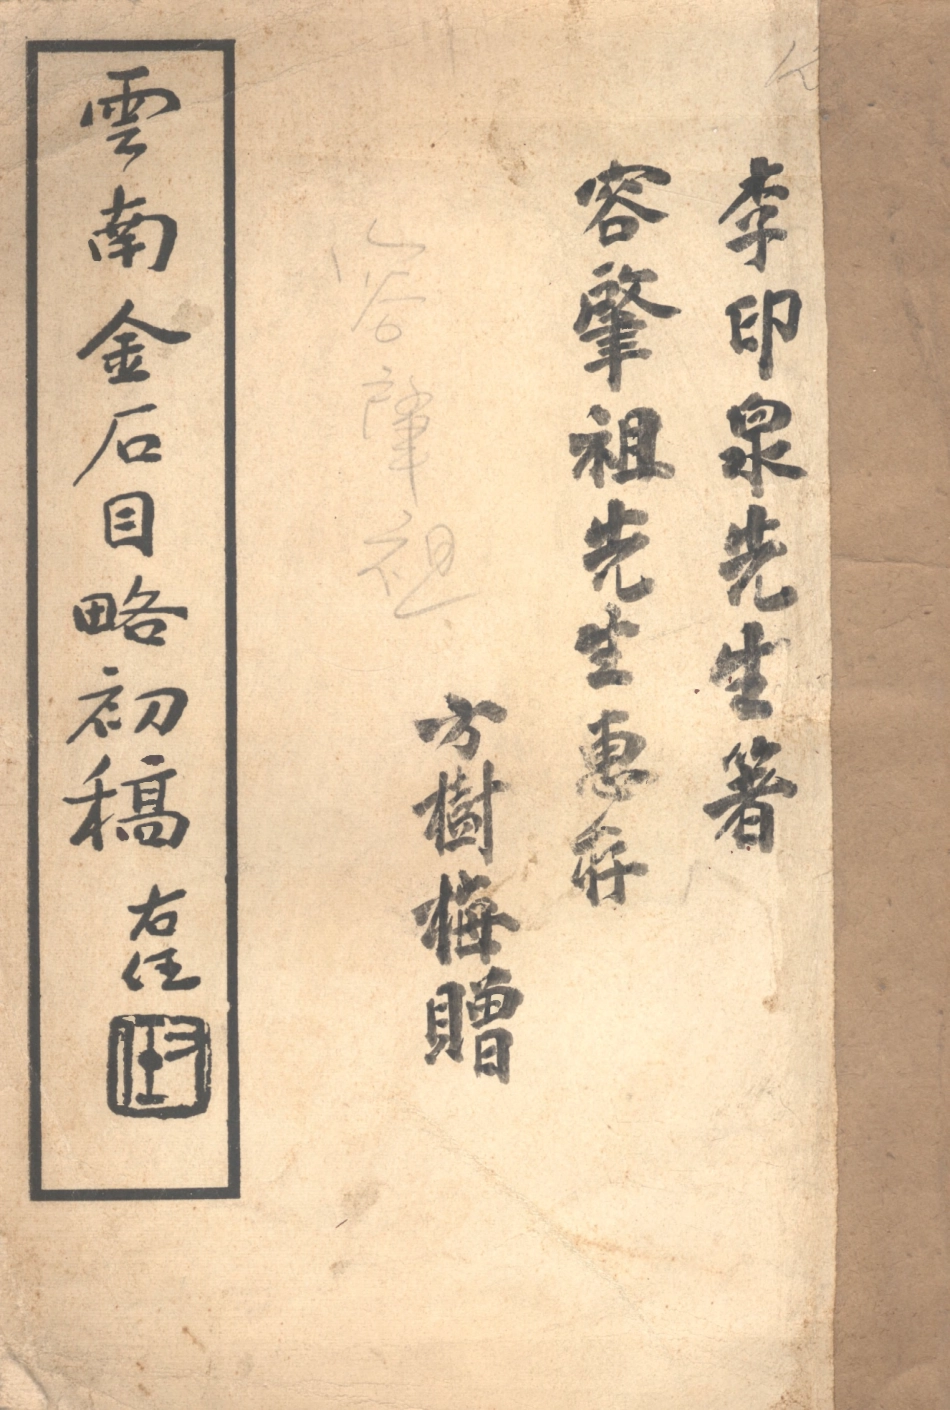 李印泉先生著
容肇祖先生惠存
方樹梅贈
容肇祖
雲南金石目略初稿
右任